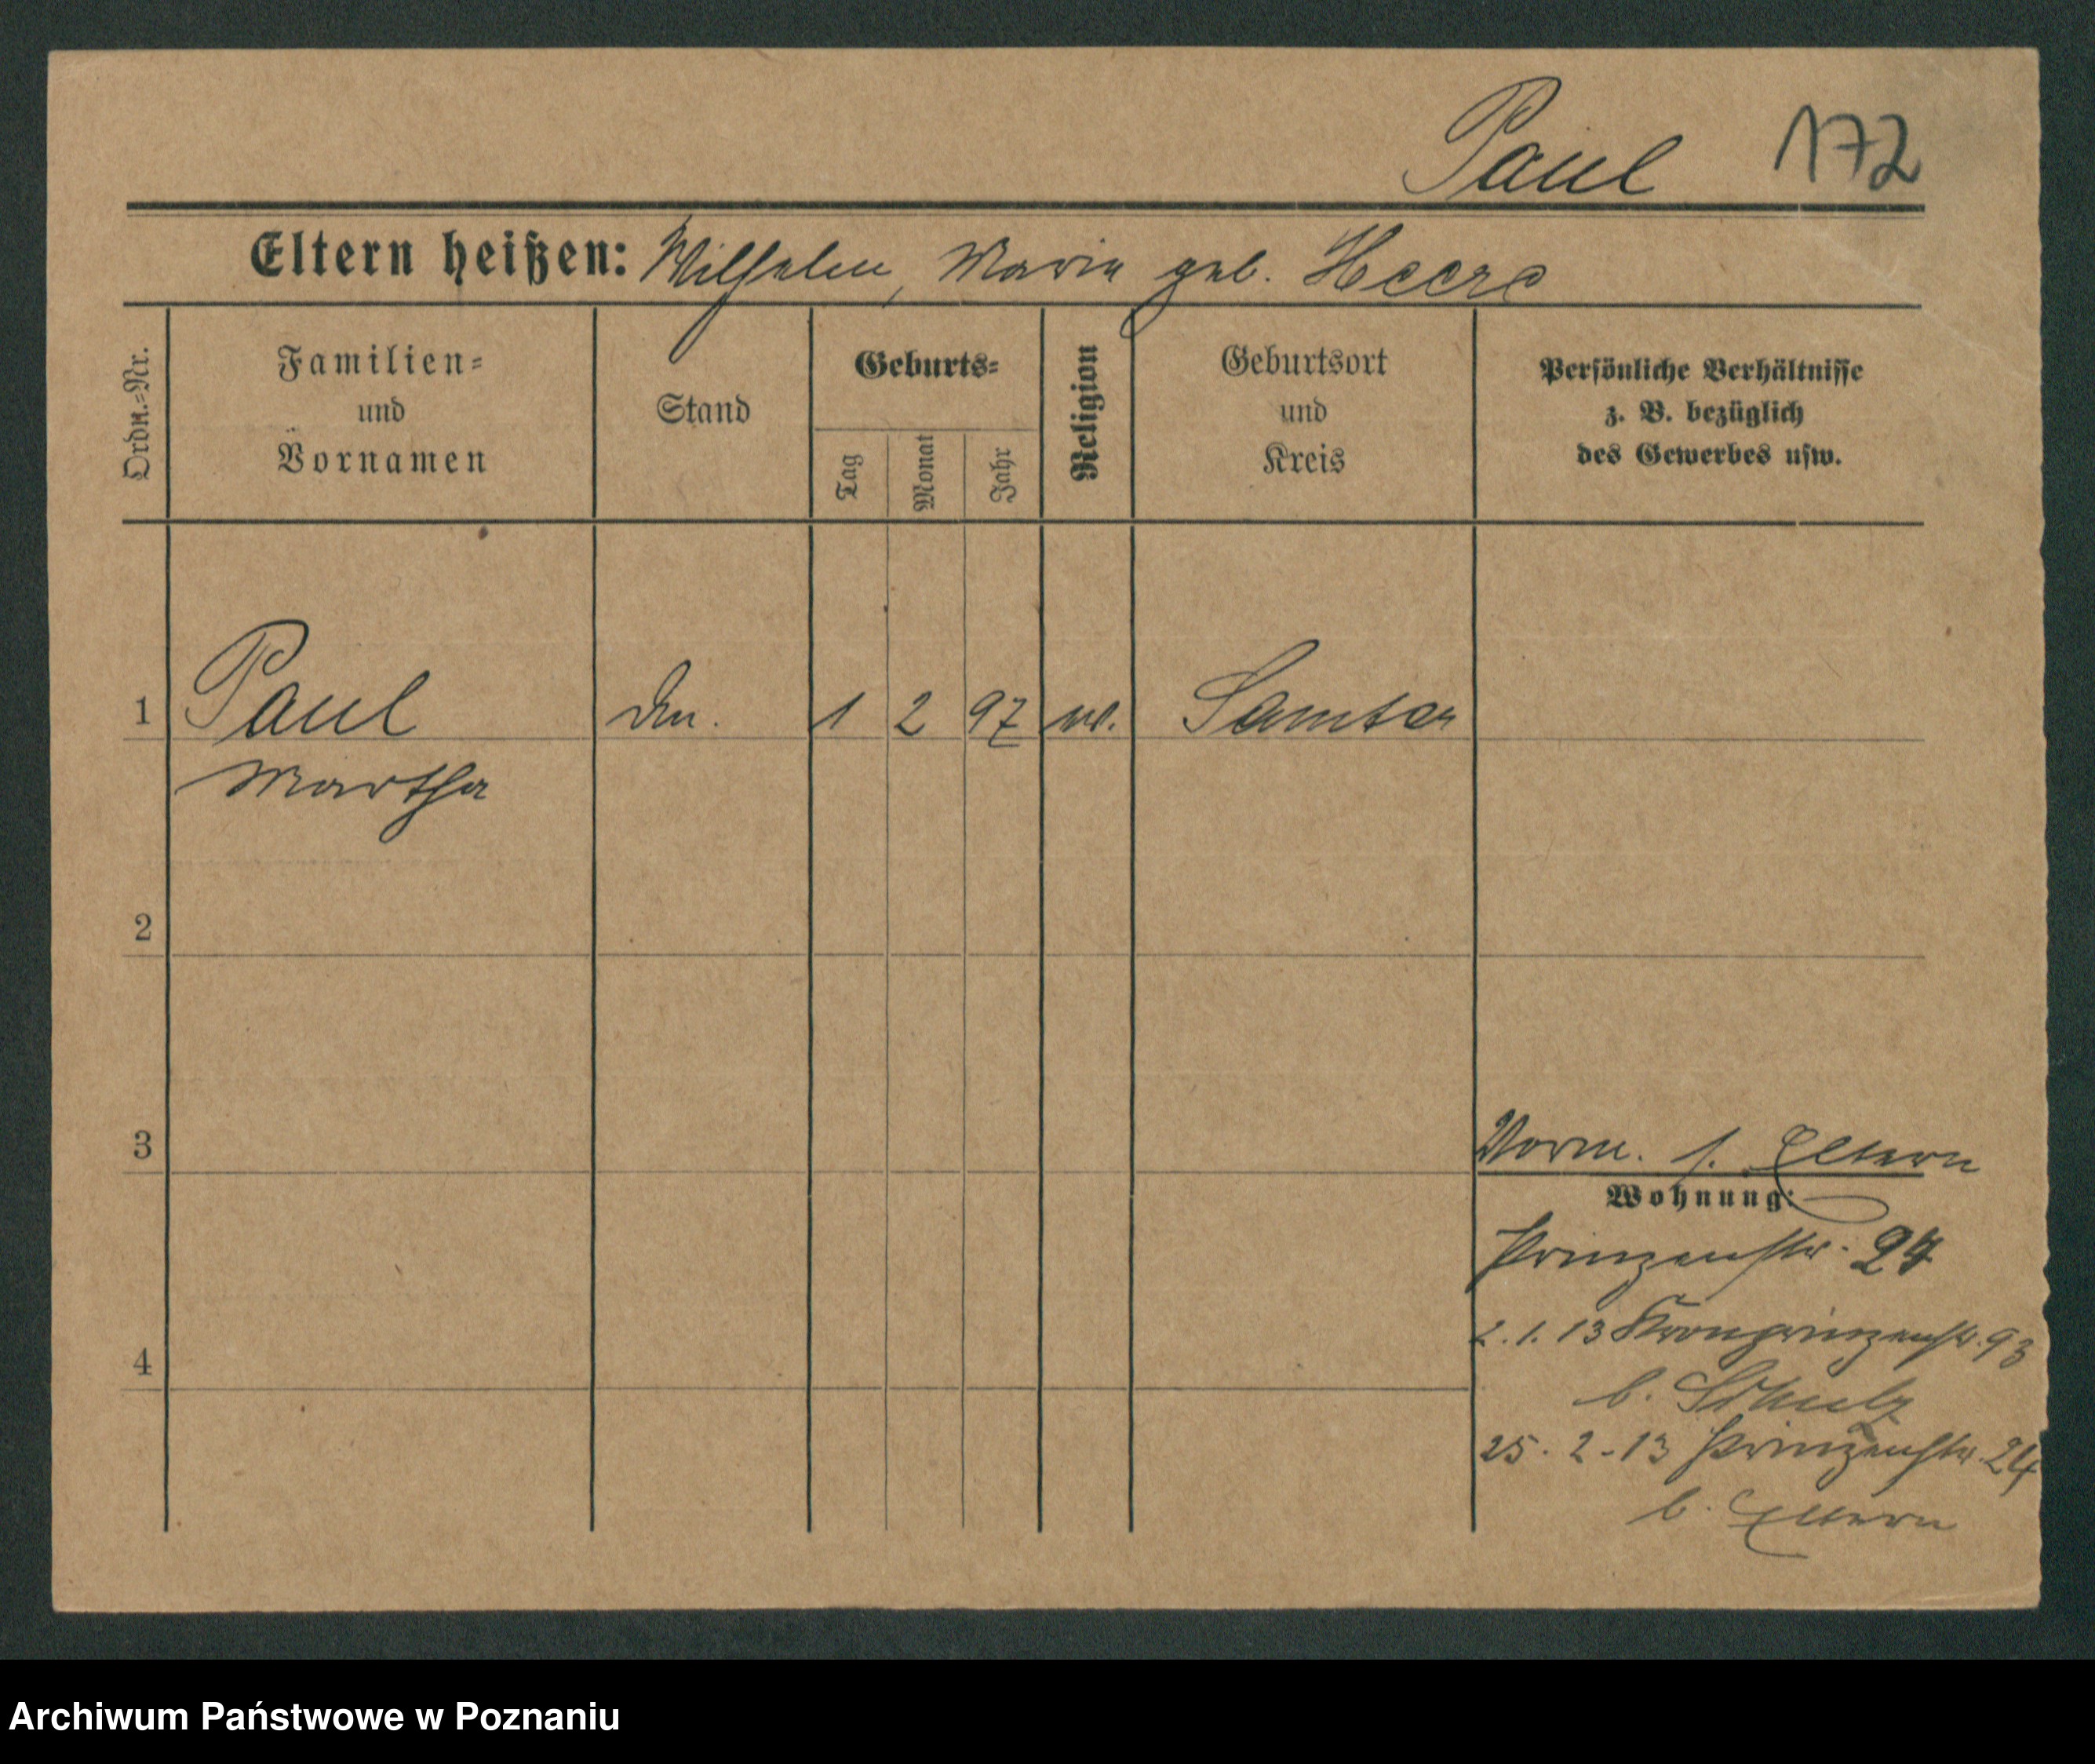 Paul 172
Eltern heißen: Wilhelm, Maria geb. Heere
Ordn.=Nr.
Familien=
und
Vornamen
Stand
Geburts=
Tag
Monat
Jahr
Religion
Geburtsort
und
Kreis
Persönliche Verhältnisse
z. B. bezüglich
des Gewerbes usw.
1 Paul 1 2 97 Samter
Martha
2
3
Vorm. s. Eltern
Wohnung:
Prinzenstr. 24
2.1.13 Kronprinzenstr. 93
b. Schulz
25.2.13 Prinzenstr. 24
4
b. Eltern
Archiwum Państwowe w Poznaniu